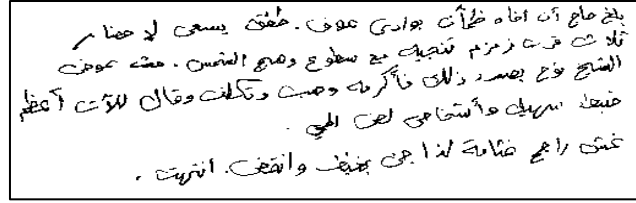 بلغ حاج أن أخاه ظمآن بوادي عوف. طفق يسعى لإحضار
ثلاث قرب زمزم تنجيه مع سطوع وهج الشمس. حث عوض
الشيخ نوح بصدد ذلك فأكرمه وهب وتكلف وقال للآت أعظم
ضبط سهيل وأشخاص لص الحي.
غش راجح غثامة لذا جن بغيظ وانقض. انتهت.